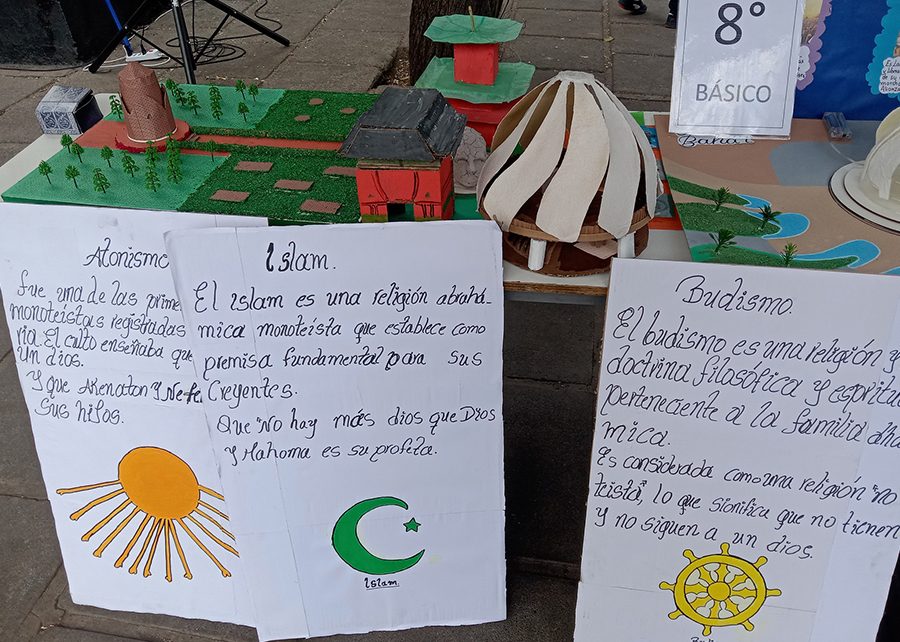 8°
BÁSICO
Atonismo
fue una de las prime
monoteístas registradas
ria El culto enseñaba que
Un dios.
Y que Akenaton y Nefe
Sus hijos.
Islam.
El islam es una religión abrahá-
mica monoteísta que establece como
premisa fundamental para sus
Creyentes.
Que "No hay más dios que Dios
y Mahoma es su profeta.
Islam.
Budismo.
El budismo es una religión y
doctrina filosófica y espiritua
perteneciente a la familia dha
mica.
Es considerada como una religión "no
teísta", lo que significa que no tienen
y no siguen a un dios.